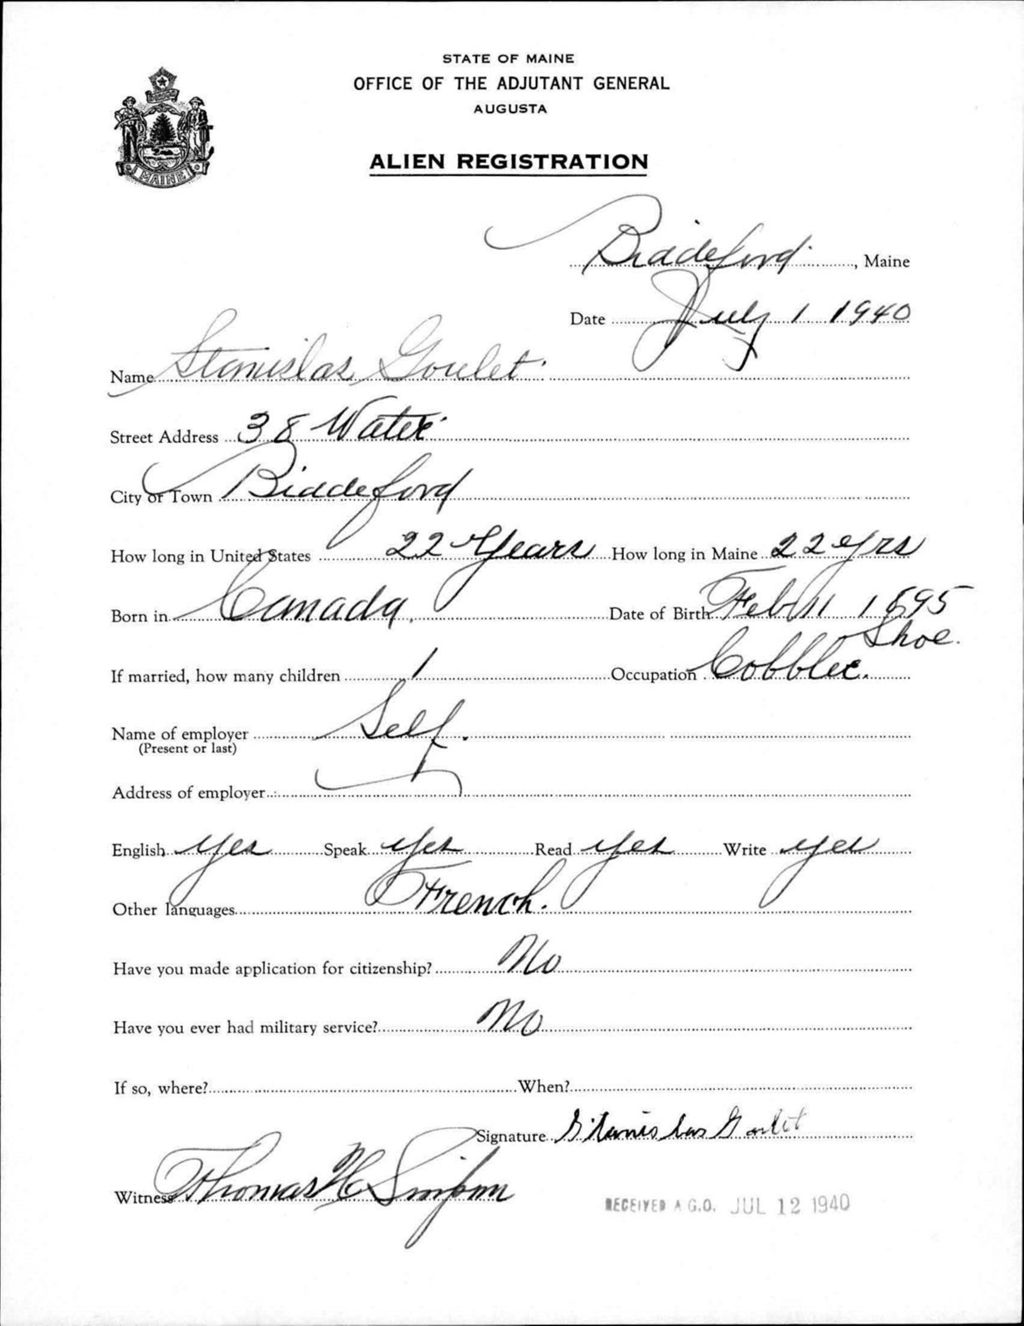 STATE OF MAINE
OFFICE OF THE ADJUTANT GENERAL
AUGUSTA
ALIEN REGISTRATION
MAINE
Biddeford, Maine
Date July 1 1940
Name Stanislas Goulet.
Street Address 38 Water
City or Town Biddeford
How long in United States 22 Years How long in Maine 22 yrs
Born in Canada, Date of Birth Feb 11 1895
If married, how many children 1 Occupation Shoe Cobbler.
Name of employer Self.
(Present or last)
Address of employer
English yes Speak yes Read yes Write yes
Other languages French.
Have you made application for citizenship? No
Have you ever had military service? No
If so, where? When?
Signature Stanislas Goulet
Witness Thomas H Simpson
RECEIVED A.G.O. JUL 12 1940